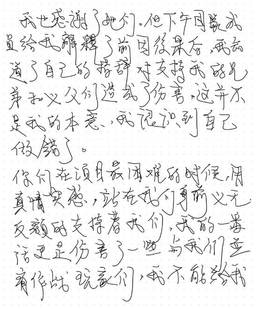 我也感谢了她们。但下午团队成
员给我解释了前因后果后，我知
道了自己的措辞对支持我的兄
弟和义父们造成了伤害，这并不
是我的本意，我认识到自己
做错了。
你们在项目最困难的时候，用
真情实感，站在我们身前义无
反顾的支持着我们，我的一番
话更是伤害了一些与我们并
肩作战玩家们，我不能给我